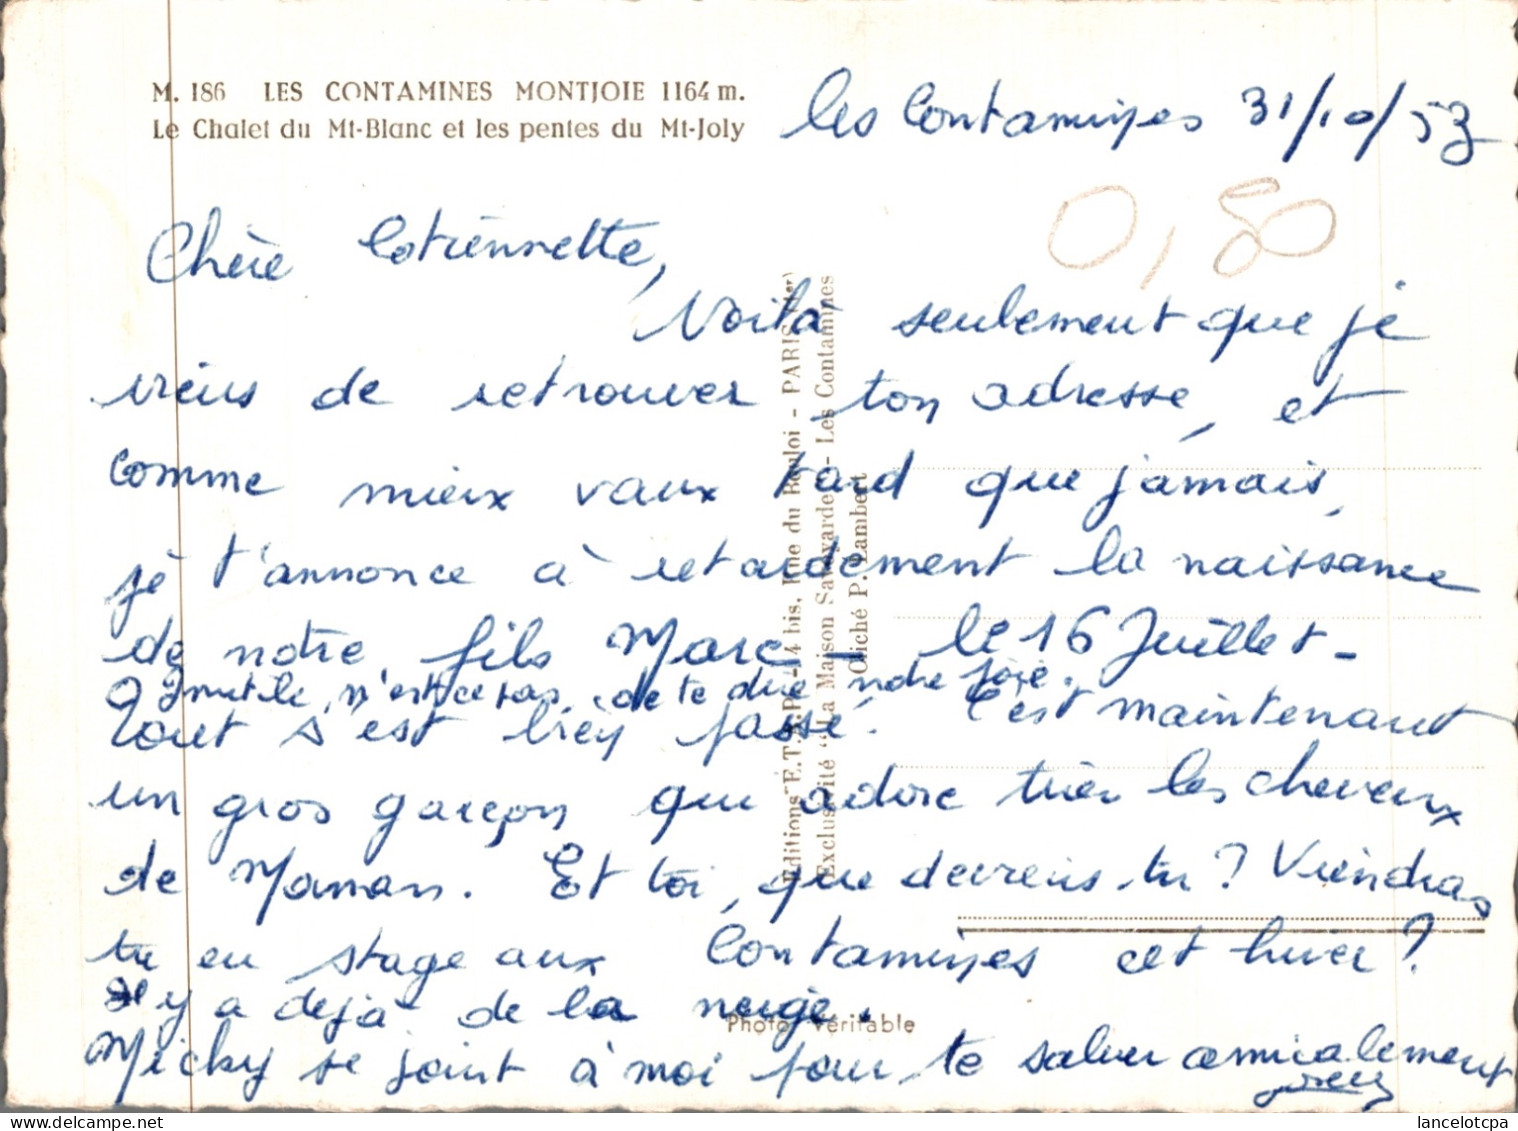 M. 186 LES CONTAMINES MONTJOIE 1164 m.
Le Chalet du Mt-Blanc et les pentes du Mt-Joly
les Contamines 31/10/53
0,80
Chère Cotiennette,
Voilà seulement que je
viens de retrouver ton adresse, et
comme mieux vaux tard que jamais,
je t'annonce à retardement la naissance
de notre fils Marc - le 16 Juillet -
Inutile, n'est ce pas, de te dire notre joie.
Tout s'est bien passé. C'est maintenant
un gros garçon qui adore tirer les cheveux
de Maman. Et toi, que deviens-tu ? Viendras
tu en stage aux Contamines cet hiver ?
Il y a déjà de la neige.
Micky se joint à moi pour te saluer amicalement
Editions E.T. 14 bis, Rue du Bouloi - PARIS (1er)
Exclusivité "La Maison Savoyarde" - Les Contamines
Cliché P. Lambert
Photo véritable
lancelotcpa